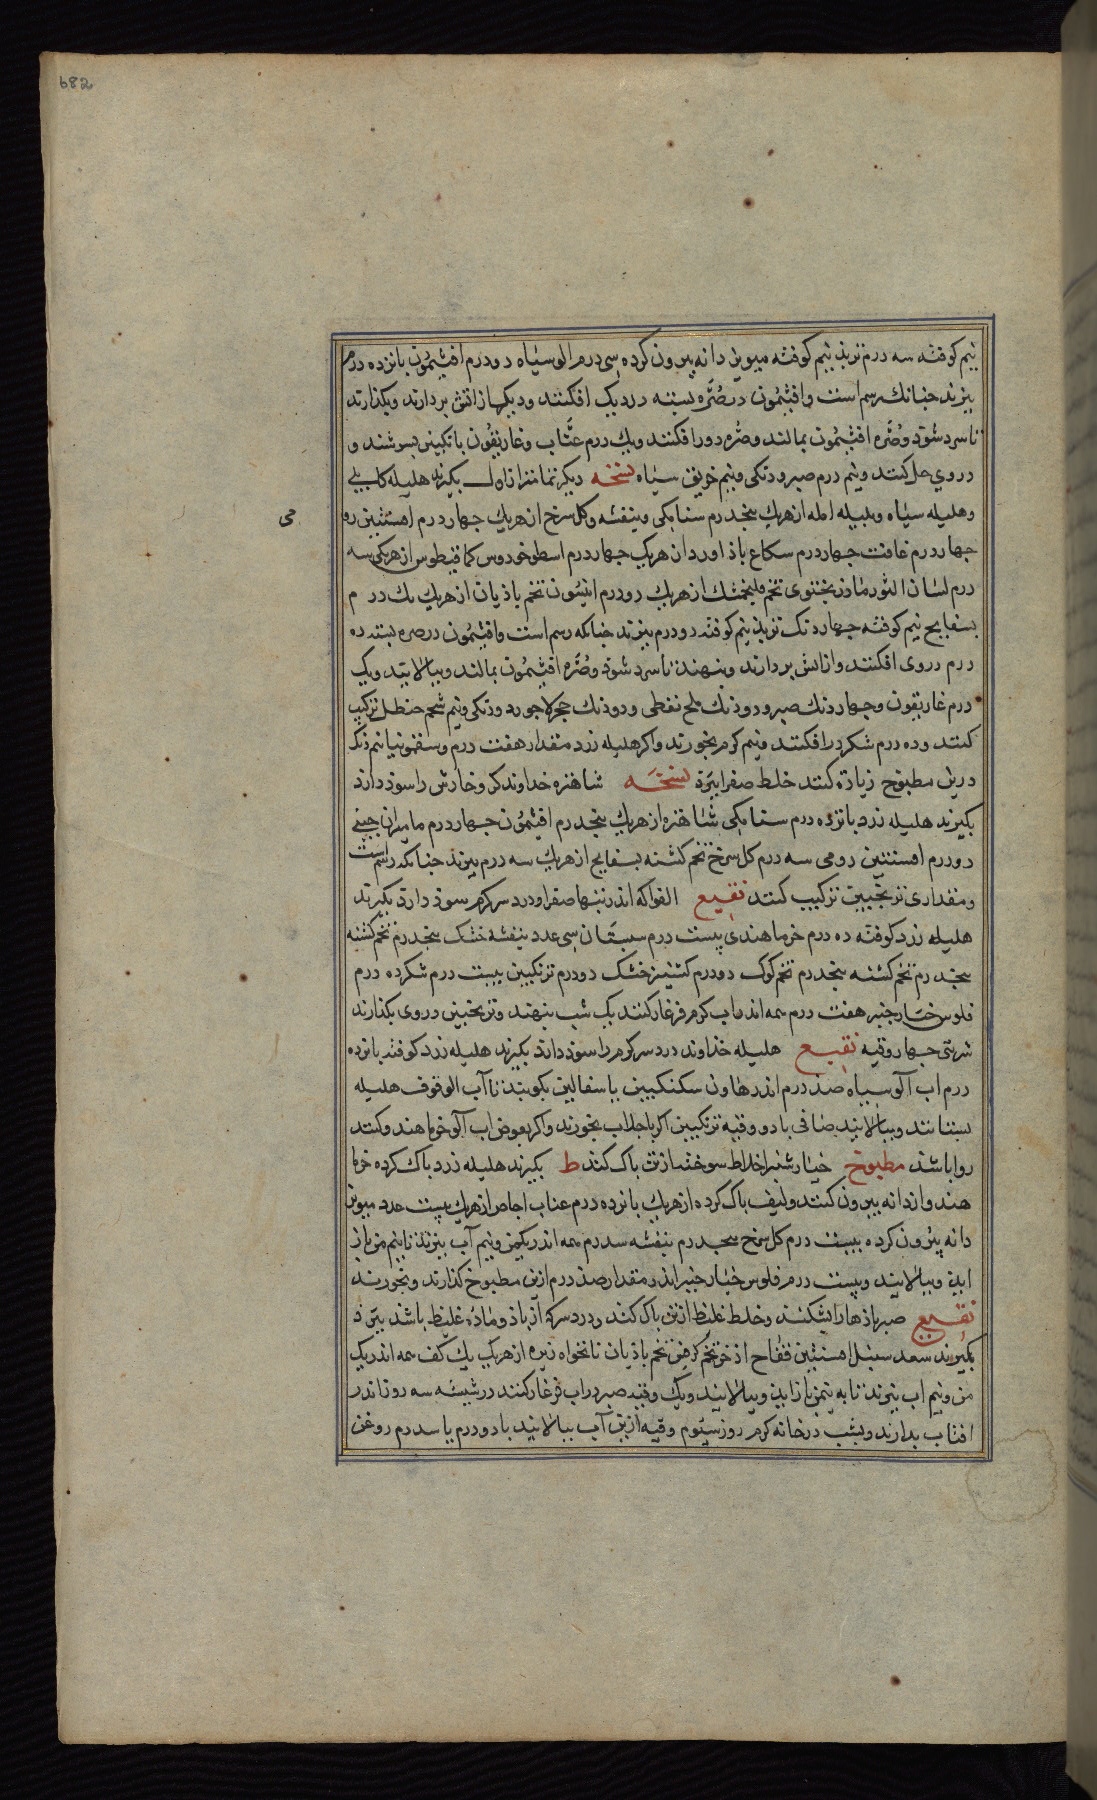 682
نیم کوفته سه درم تربذ نیم کوفته میویز دانه بیرون کرده سی درم الو سیاه دو درم افتیمون بانزده درم
بیزند جنانک رسم است وافتیمون در صُرّه بسته در دیک افکنند ودیک از اتش بردارند وبکذارند
تا سرد شوذ وصُرّه افتیمون بمالند وصُره دور افکنند ویک درم وغاریقون بانکبین بسرشند و
در وی حل کنند ونیم درم صبر ودنکی ونیم خربق سیاه نسخه دیکر بکیرند هلیله کابلی
وهلیله سیاه وبلیله امله از هریک بنجدرم سنا مکی وبنفشه وکل سرخ از هریک جهار درم افسنتین رو
می
جهار درم غافت جهار درم سکاع باذاورد از هریک جهار درم اسطوخودوس کمافیطوس از هریکی سه
درم لسان الثور تخم فلنجمشک از هریک دو درم انیسون تخم باذیان از هریک یک درم
بسفایج نیم کوفته جهار دنک تربذ نیم کوفته دو درم بیزند جنانکه رسم است وافتیمون در صره بسته ده
درم در وی افکنند واز اتش بردارند وبنهند تا سرد شوذ وصُرّه افتیمون بمالند وببالایند ویک
درم غاریقون وجهار دنک صبر ودو دنک ملح نفطی ودو دنک حجر لاجورد ودنکی ونیم شحم حنظل ترکیب
کنند وده درم شکر در افکنند ونیم کرم بخورند واکر هلیله زرد مقدار هفت درم وسقمونیا نیم دنک
درین مطبوخ زیاذة کنند خلط صفرا ببرَذ نسخَه شاهتره خداوند کر وخارش را سوذ دارد
بکیرند هلیله زرد بانزده درم سنا مکی شاهتره از هریک بنجدرم افتیمون جهار درم مامیران جینی
دو درم افسنتین رومی سه درم کل سرخ تخم کشنه بسفایج از هریک سه درم بیزند جنانکه رسم است
ومقداری ترنجبین ترکیب کنند نقیع الفواکه اندر تبها صفرا ودرد سر کرم سوذ دارذ بکیرند
هلیله زرد کوفته ده درم خرما هندی بیست درم سبستان سی عدد بنفشه خشک بنجدرم تخم کشنه
بنجدرم تخم کشنه بنجدرم تخم کوک دو درم کشنیز خشک دو درم ترنکبین بیست درم شکر ده درم
فلوس خیارجنبر هفت درم همه اندر اب کرم فرغار کنند یک شب بنهند وترنجبین در وی بکذارند
شربتی جهار وقیه نقیع هلیله خذاوند درد سر کرم را سوذ دارذ بکیرند هلیله زرد کوفته بانزده
درم اب آلو سیاه صذ درم اندر هاون سنکین یا سفالین بکوبند تا آب الو قوف هلیله
بستانند وببالایند صافی با دو وقیه ترنکبین اکر با جلاب بخورند واکر بعوض اب آلو خرما هندو کنند
روا باشذ مطبوخ خیارشنبر اخلاط سوخته از تن باک کند ط بکیرند هلیله زرد باک کرده خرما
هندو از دانه بیرون کنند ولیف باک کرده از هریک بانزده درم عناب اجاص از هریک بیست عدد میویز
دانه بیرون کرده بیست درم کل سرخ بنجدرم بنفشه سدرم همه اندر یکمن ونیم آب بیزند تا بنیم من باز
ایذ وببالایند وبیست درم فلوس خیارجنبر اندر مقدار صذ درم ازین مطبوخ کذارند وبخورند
نقیع صبر باذها را بشکنذ وخلط غلیظ از تن باک کند ودرد سر که از باذ وماده غلیظ باشذ ببرذ
بکیرند سعد سنبل افسنتین فقاح اذخر تخم کرفس تخم باذیان نانخواه زیره از هریک یک کف همه اندر یک
من ونیم اب بیزند تا به نیمن باز ایذ وببالایند ویک وقیه صبر در اب فرغار کنند در شیشه سه روز اندر
افتاب بدارند وبشب در خانه کرم روز سیوم وقیه ازین آب ببالایند با دو درم یا سدرم روغن